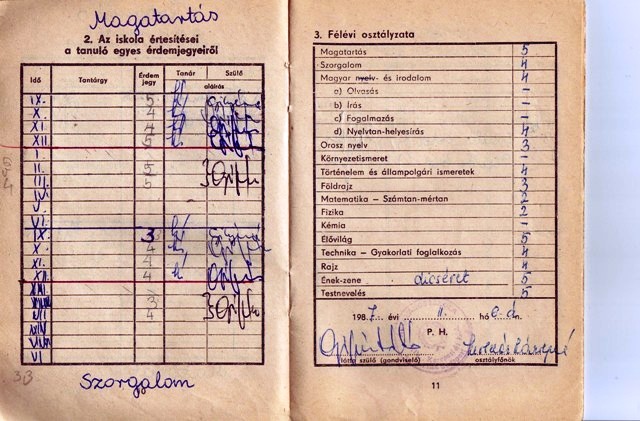 Magatartás
2. Az iskola értesítései
a tanuló egyes érdemjegyeiről
Idő Tantárgy Érdem jegy Tanár Szülő
aláírás
IX. 5
X. 4
XI. 4
XII. 5
I.
II. 5
III. 5
IV.
V.
VI.
IX. 3
X. 4
XI. 4
XII. 4
3
4
VI
Szorgalom
3. Félévi osztályzata
Magatartás 5
Szorgalom 4
Magyar nyelv- és irodalom 4
a) Olvasás –
b) Írás –
c) Fogalmazás –
d) Nyelvtan-helyesírás 4
Orosz nyelv 3
Környezetismeret –
Történelem és állampolgári ismeretek 4
Földrajz 3
Matematika – Számtan-mértan 2
Fizika 2
Kémia –
Élővilág 5
Technika – Gyakorlati foglalkozás 4
Rajz 4
Ének-zene dicséret 5
Testnevelés 5
1987. évi II. hó 6.-án.
P. H.
látta szülő (gondviselő) osztályfőnök
11